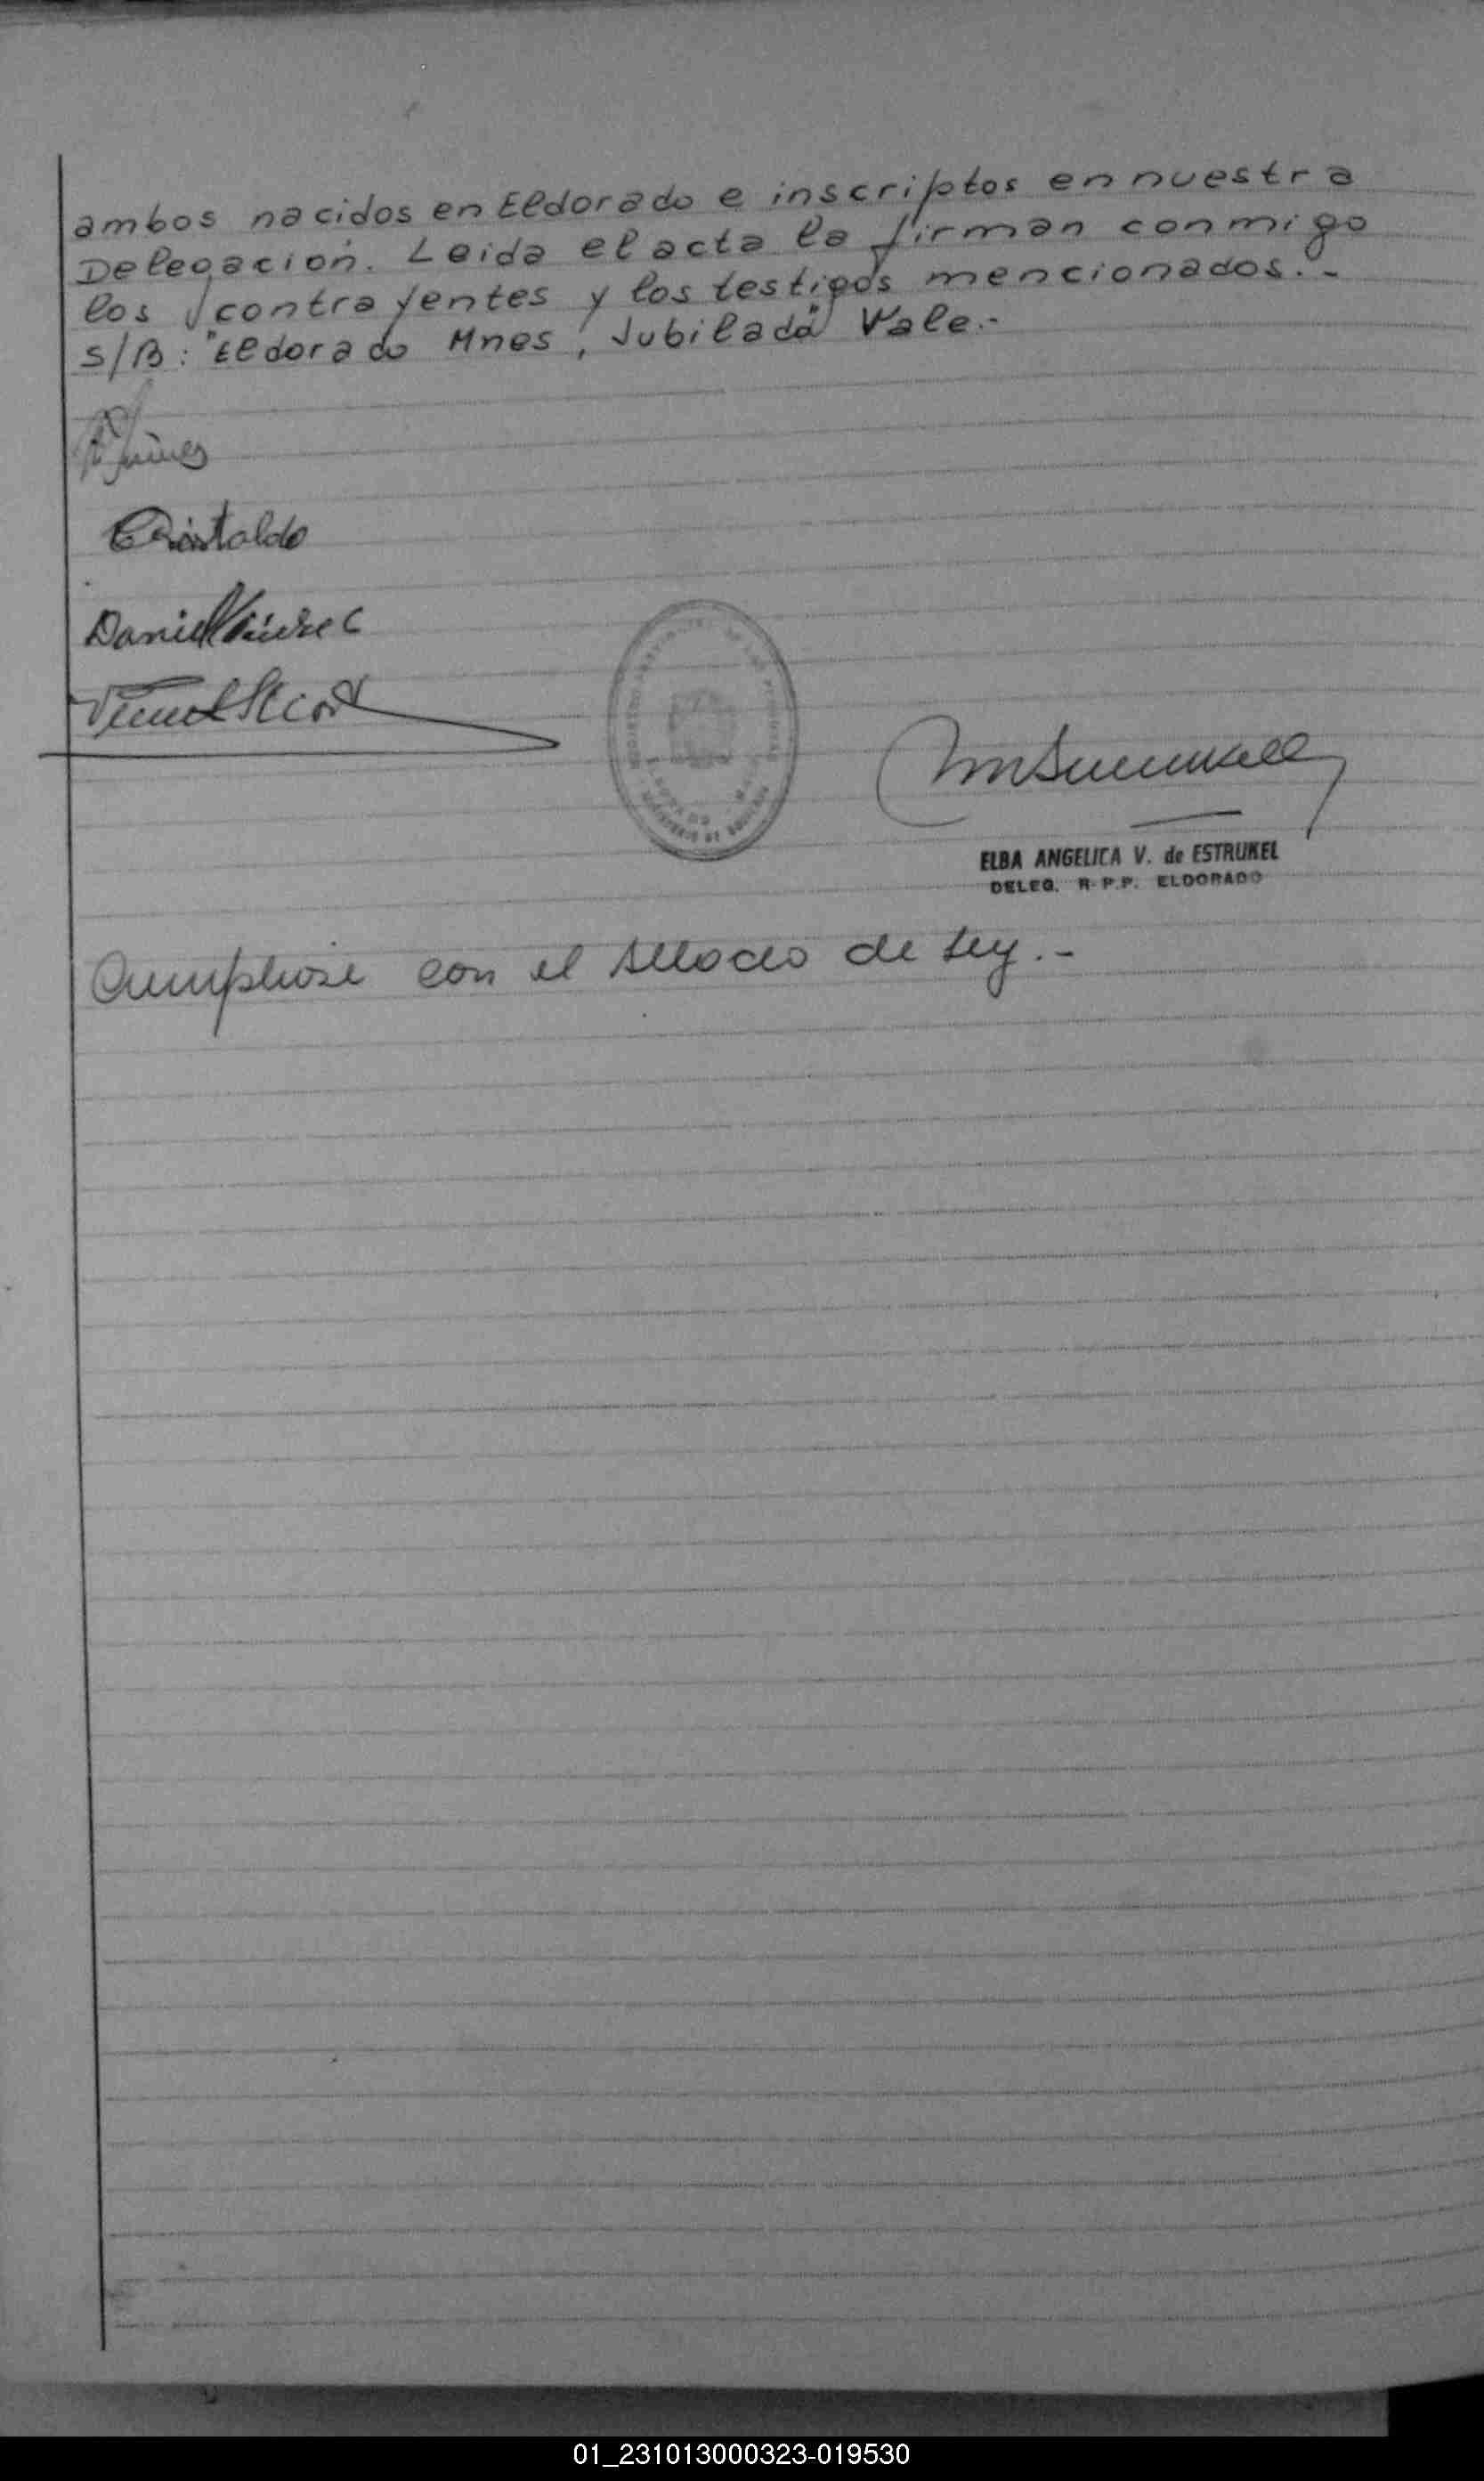 ambos nacidos en Eldorado e inscriptos en nuestra
Delegación. Leida el acta la firman conmigo
los contrayentes y los testigos mencionados.-
S/B: "Eldorado Mnes, Jubilada" Vale.-
Cristaldo
Daniel
ELBA ANGELICA V. de ESTRUKEL
DELEG. R.P.P. ELDORADO
Cumpliose con el sellado de Ley.-
01_231013000323-019530